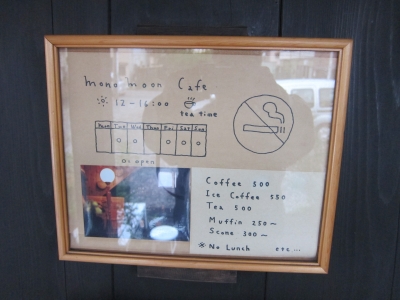 mono.moon Cafe
12-16:00
tea time
Mon Tue Wed Thur Fri Sat Sun
○ ○ ○ ○ ○
○: open
Coffee 500
Ice Coffee 550
Tea 500
Muffin 250~
Scone 300~
※ No Lunch etc...